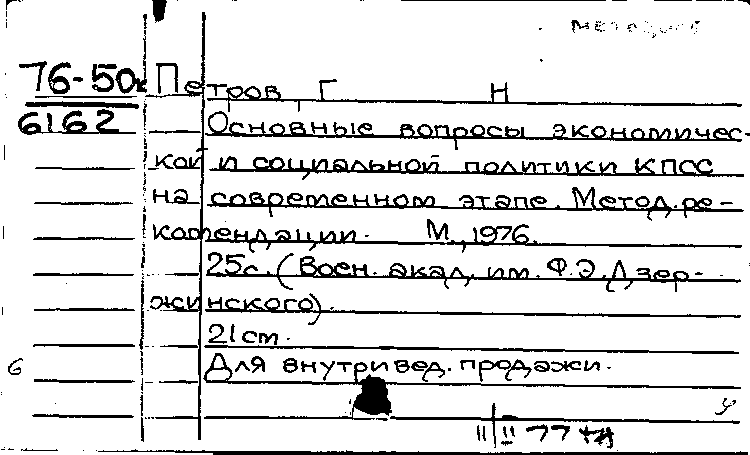 76-50к Петров, Г Н
6162 Основные вопросы экономичес-
кой и социальной политики КПСС
на современном этапе. Метод.ре-
комендации. М., 1976.
25с. (Воен. акад. им. Ф.Э. Дзер-
жинского).
21 cm.
Для внутривед. продажи.
6
II II 77